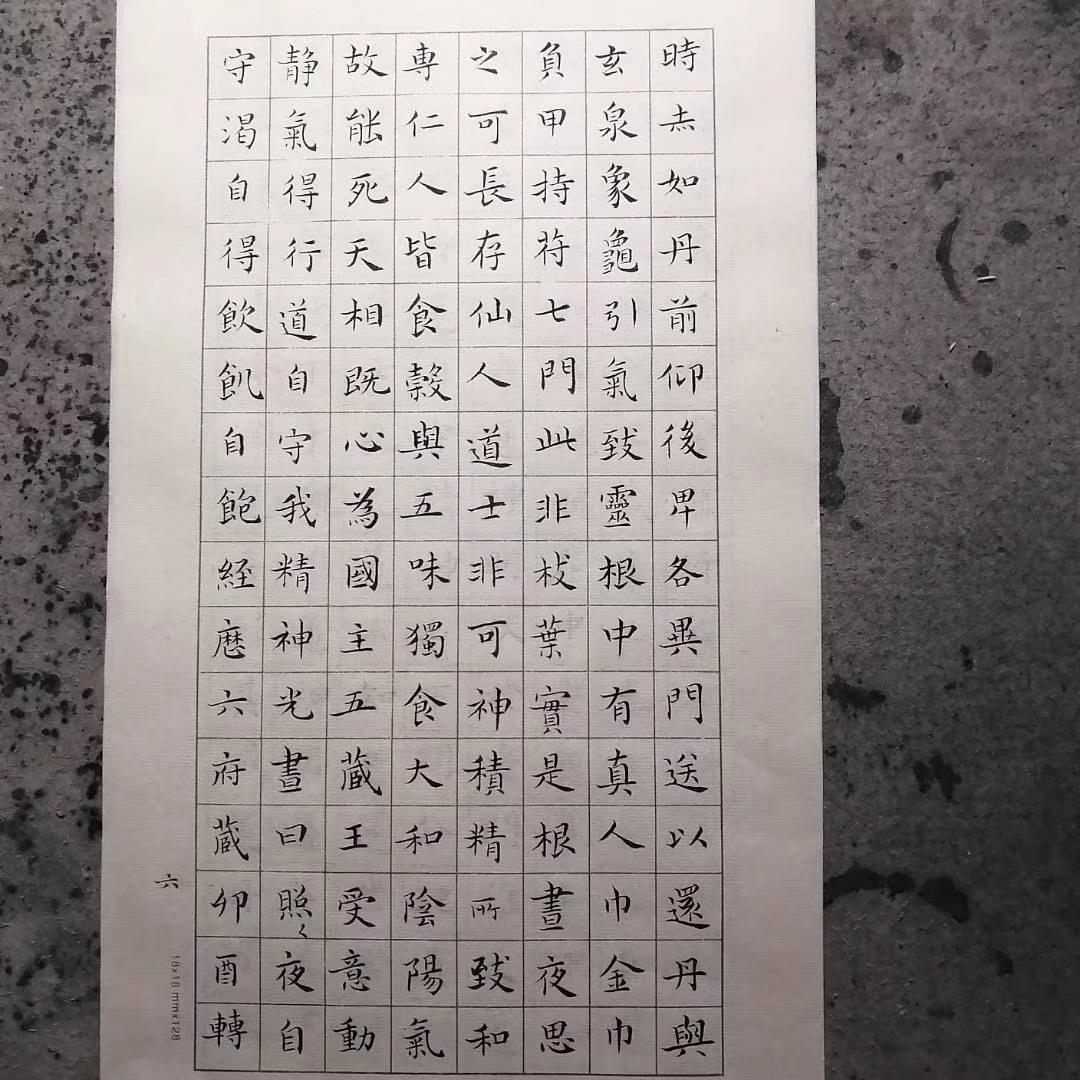 時赤如丹前仰後卑各異門送以還丹與
玄泉象龜引氣致靈根中有真人巾金巾
負甲持符七門此非枝葉實是根晝夜思
之可長存仙人道士非可神積精所致和
専仁人皆食穀與五味獨食大和陰陽氣
故能死天相既心為國主五藏王受意動
静氣得行道自守我精神光晝日照〻夜自
守渴自得飲飢自飽經歷六府藏卯酉轉
六
18x18 mmx128